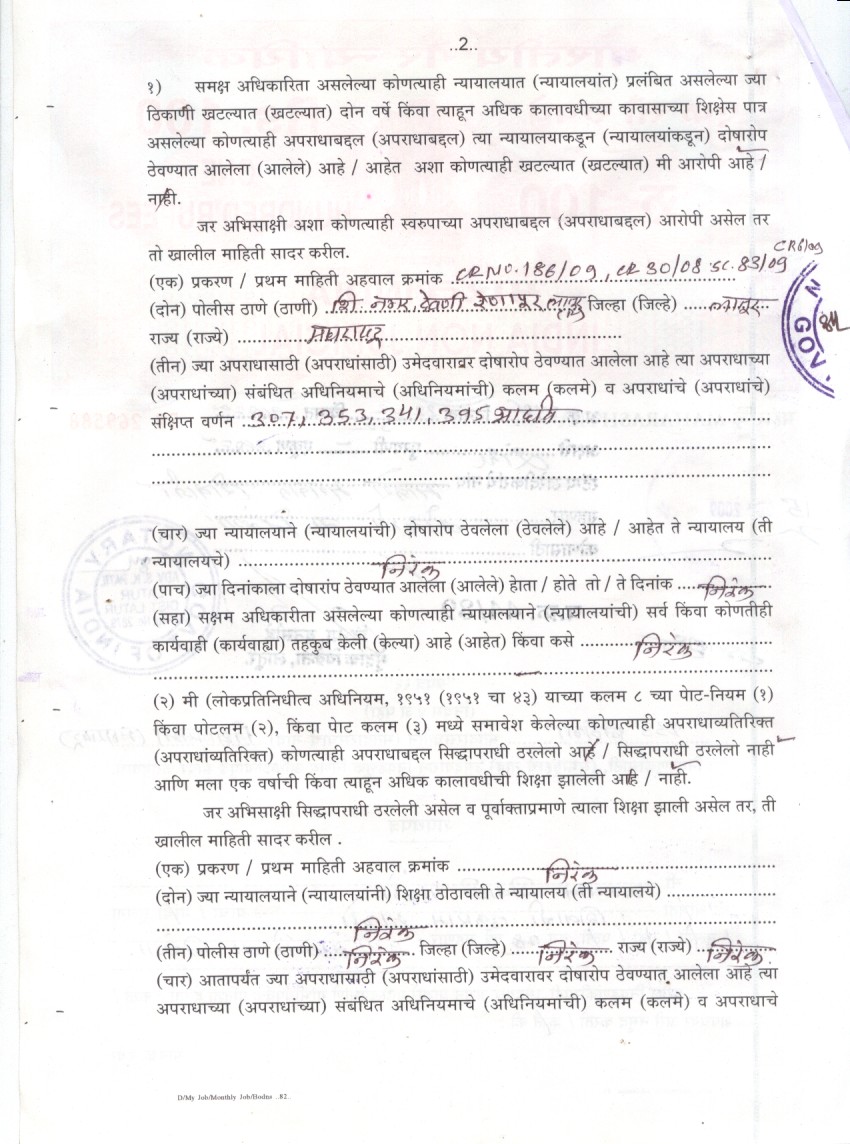 ..2..
१) समक्ष अधिकारिता असलेल्या कोणत्याही न्यायालयात (न्यायालयांत) प्रलंबित असलेल्या ज्या
ठिकाणी खटल्यात (खटल्यात) दोन वर्षे किंवा त्याहून अधिक कालावधीच्या कावासाच्या शिक्षेस पात्र
असलेल्या कोणत्याही अपराधाबद्दल (अपराधाबद्दल) त्या न्यायालयाकडून (न्यायालयांकडून) दोषारोप
ठेवण्यात आलेला (आलेले) आहे / आहेत अशा कोणत्याही खटल्यात (खटल्यात) मी आरोपी आहे /
नाही.
जर अभिसाक्षी अशा कोणत्याही स्वरुपाच्या अपराधाबद्दल (अपराधाबद्दल) आरोपी असेल तर
तो खालील माहिती सादर करील.
CR6/09
(एक) प्रकरण / प्रथम माहिती अहवाल क्रमांक CR NO. 186/09, CR 30/08 SC. 83/09
(दोन) पोलीस ठाणे (ठाणी) शि नगर, देवणी रेणापूर, जिल्हा (जिल्हे) लातूर
GOV
राज्य (राज्ये) महाराष्ट्र
(तीन) ज्या अपराधासाठी (अपराधांसाठी) उमेदवारावर दोषारोप ठेवण्यात आलेला आहे त्या अपराधाच्या
(अपराधांच्या) संबंधित अधिनियमाचे (अधिनियमांची) कलम (कलमे) व अपराधांचे (अपराधांचे)
संक्षिप्त वर्णन 307, 353, 341, 395
(चार) ज्या न्यायालयाने (न्यायालयांची) दोषारोप ठेवलेला (ठेवलेले) आहे / आहेत ते न्यायालय (ती
न्यायालयचे) निरंक
(पाच) ज्या दिनांकाला दोषारांप ठेवण्यात आलेला (आलेले) होता / होते तो / ते दिनांक निरंक
(सहा) सक्षम अधिकारीता असलेल्या कोणत्याही न्यायालयाने (न्यायालयांची) सर्व किंवा कोणतीही
कार्यवाही (कार्यवाह्या) तहकुब केली (केल्या) आहे (आहेत) किंवा कसे निरंक
(२) मी (लोकप्रतिनिधीत्व अधिनियम, १९५१ (१९५१ चा ४३) याच्या कलम ८ च्या पोट-नियम (१)
किंवा पोटलम (२), किंवा पोट कलम (३) मध्ये समावेश केलेल्या कोणत्याही अपराधाव्यतिरिक्त
(अपराधांव्यतिरिक्त) कोणत्याही अपराधाबद्दल सिद्धापराधी ठरलेलो आहे / सिद्धापराधी ठरलेलो नाही
आणि मला एक वर्षाची किंवा त्याहून अधिक कालावधीची शिक्षा झालेली आहे / नाही.
जर अभिसाक्षी सिद्धापराधी ठरलेली असेल व पूर्वाक्ताप्रमाणे त्याला शिक्षा झाली असेल तर, ती
खालील माहिती सादर करील .
(एक) प्रकरण / प्रथम माहिती अहवाल क्रमांक निरंक
(दोन) ज्या न्यायालयाने (न्यायालयांनी) शिक्षा ठोठावली ते न्यायालय (ती न्यायालये)
निरंक
(तीन) पोलीस ठाणे (ठाणी) निरंक जिल्हा (जिल्हे) निरंक राज्य (राज्ये) निरंक
(चार) आतापर्यंत ज्या अपराधासाठी (अपराधांसाठी) उमेदवारावर दोषारोप ठेवण्यात आलेला आहे त्या
अपराधाच्या (अपराधांच्या) संबंधित अधिनियमाचे (अधिनियमांची) कलम (कलमे) व अपराधाचे
D/My Job/Monthly Job/Bodns ..82..